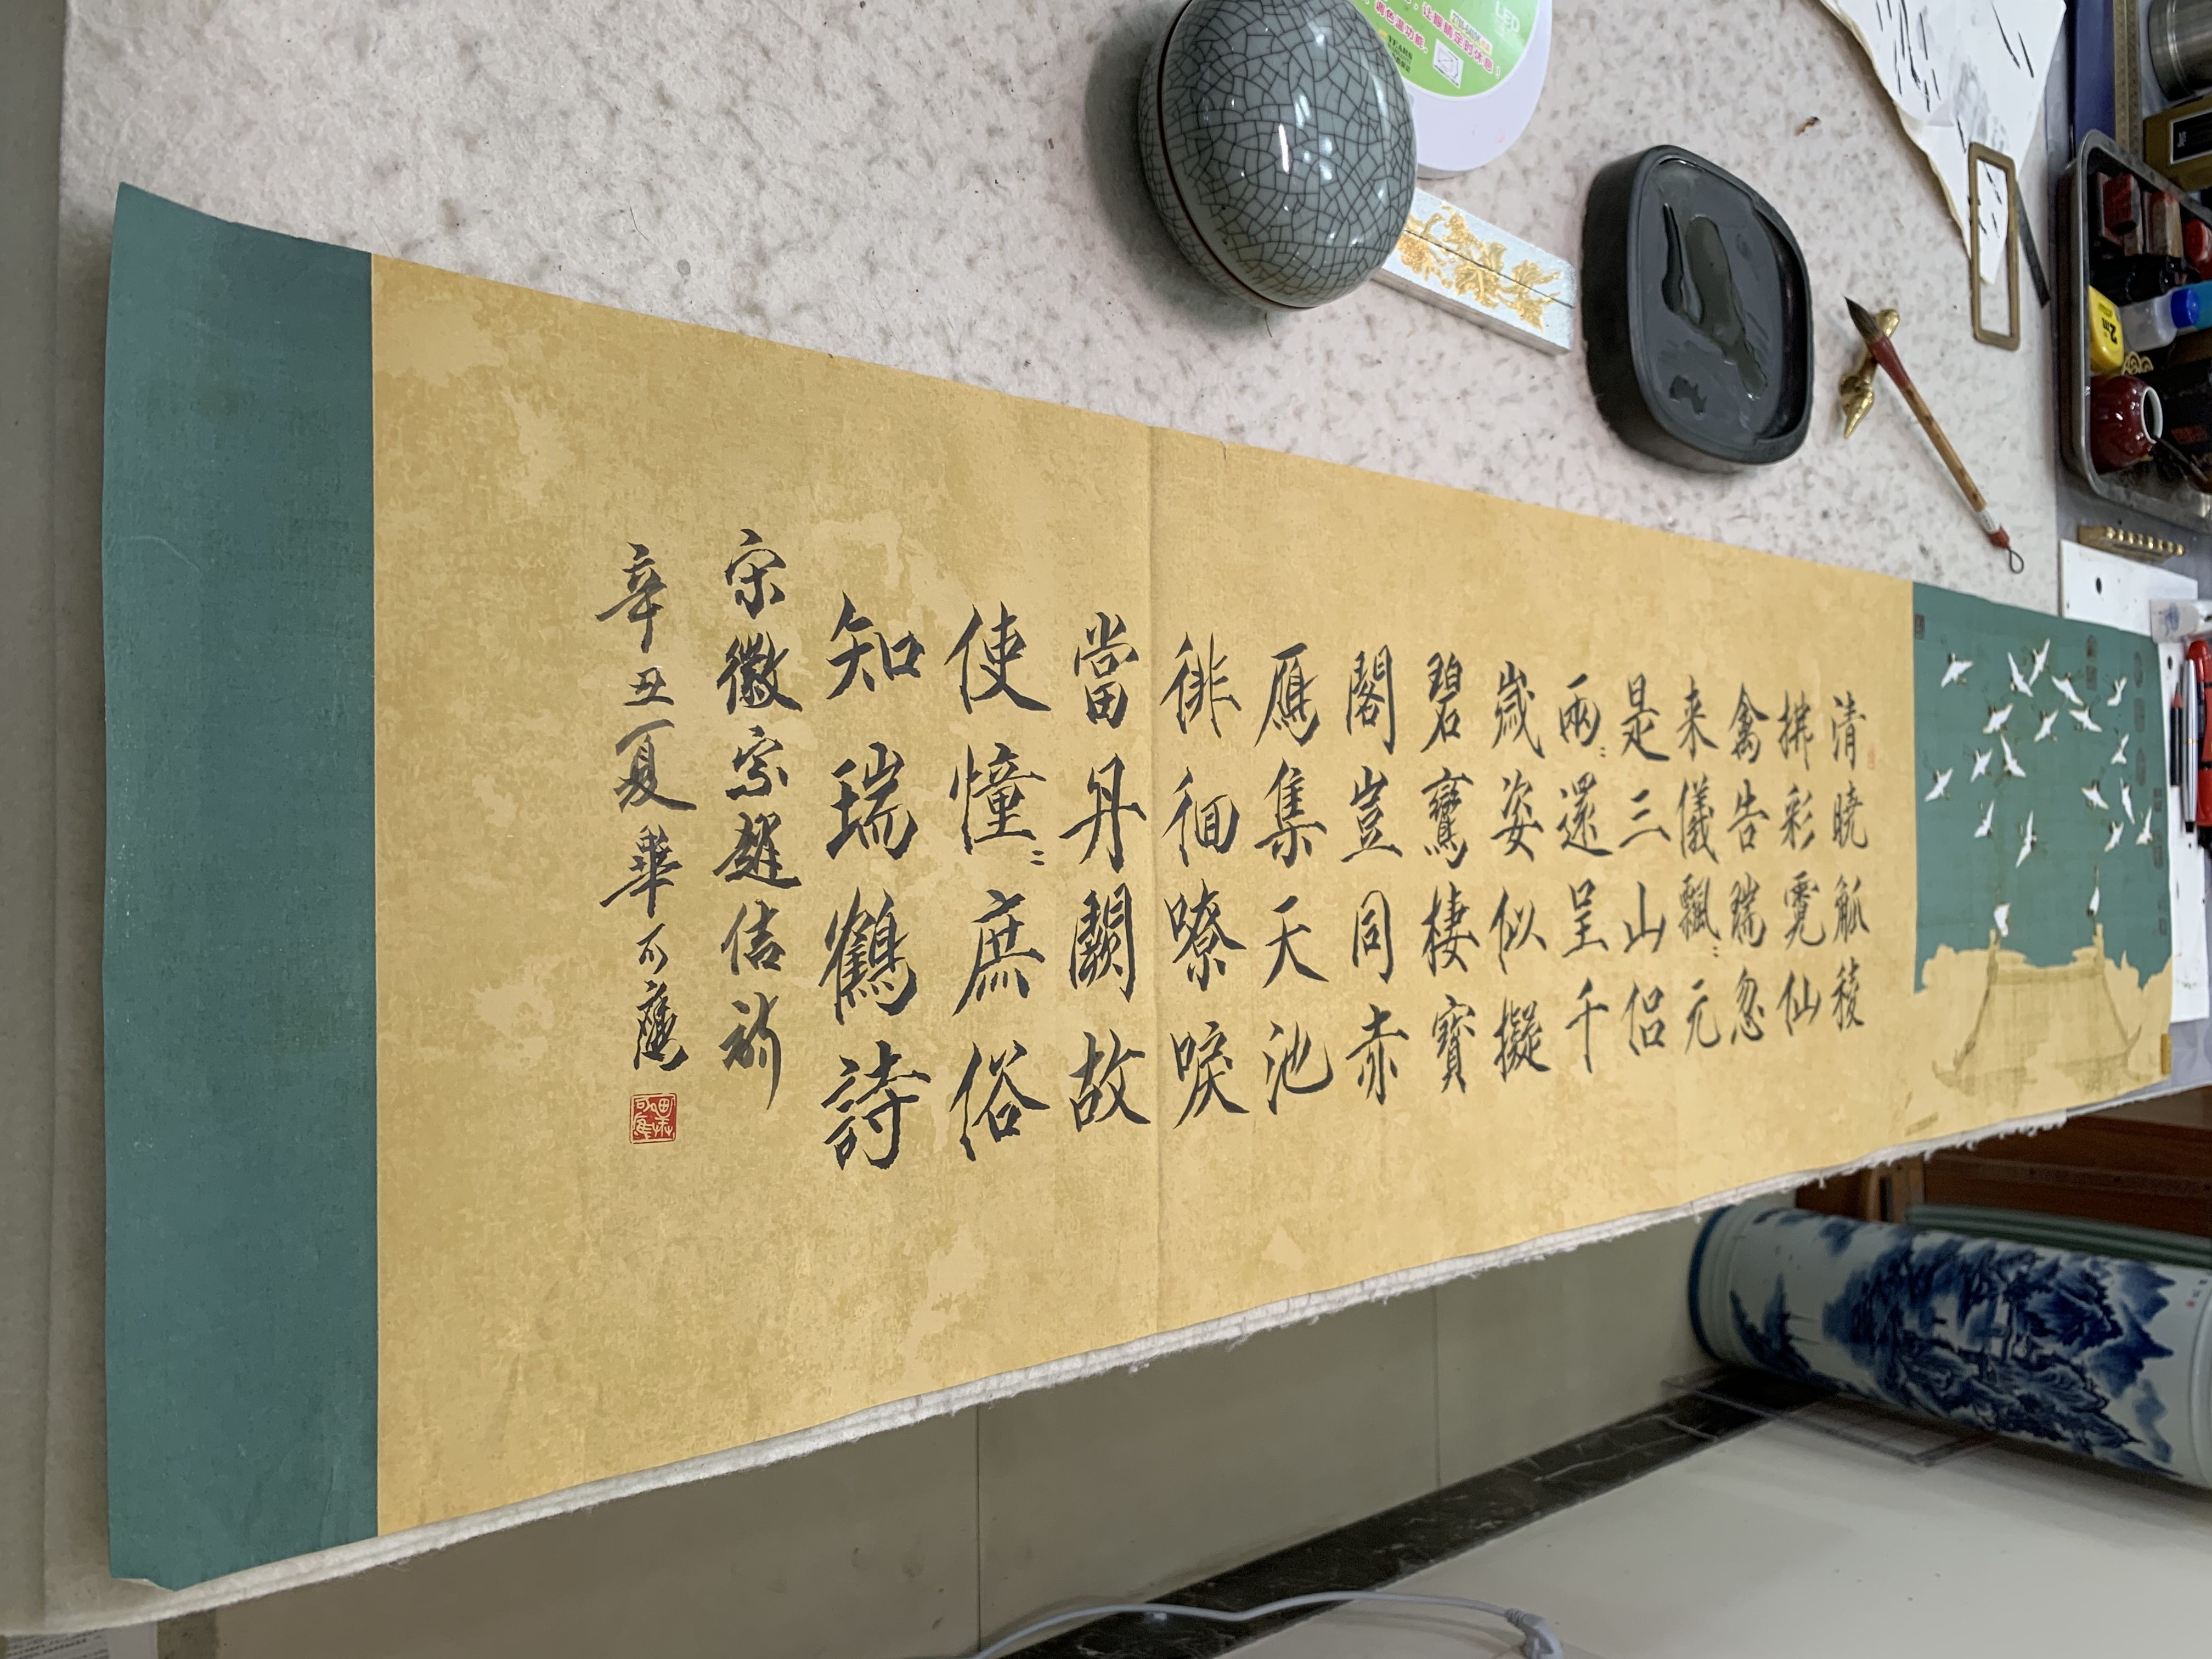 清曉觚稜
拂彩霓仙
禽告瑞忽
来儀飄〻元
是三山侣
兩〻還呈千
歲姿似擬
碧鸞棲寶
閣豈同赤
鴈集天池
徘徊嘹唳
當丹闕故
使憧〻庶俗
知瑞鶴詩
宋徽宗趙佶詩
辛丑夏華
LED
2m